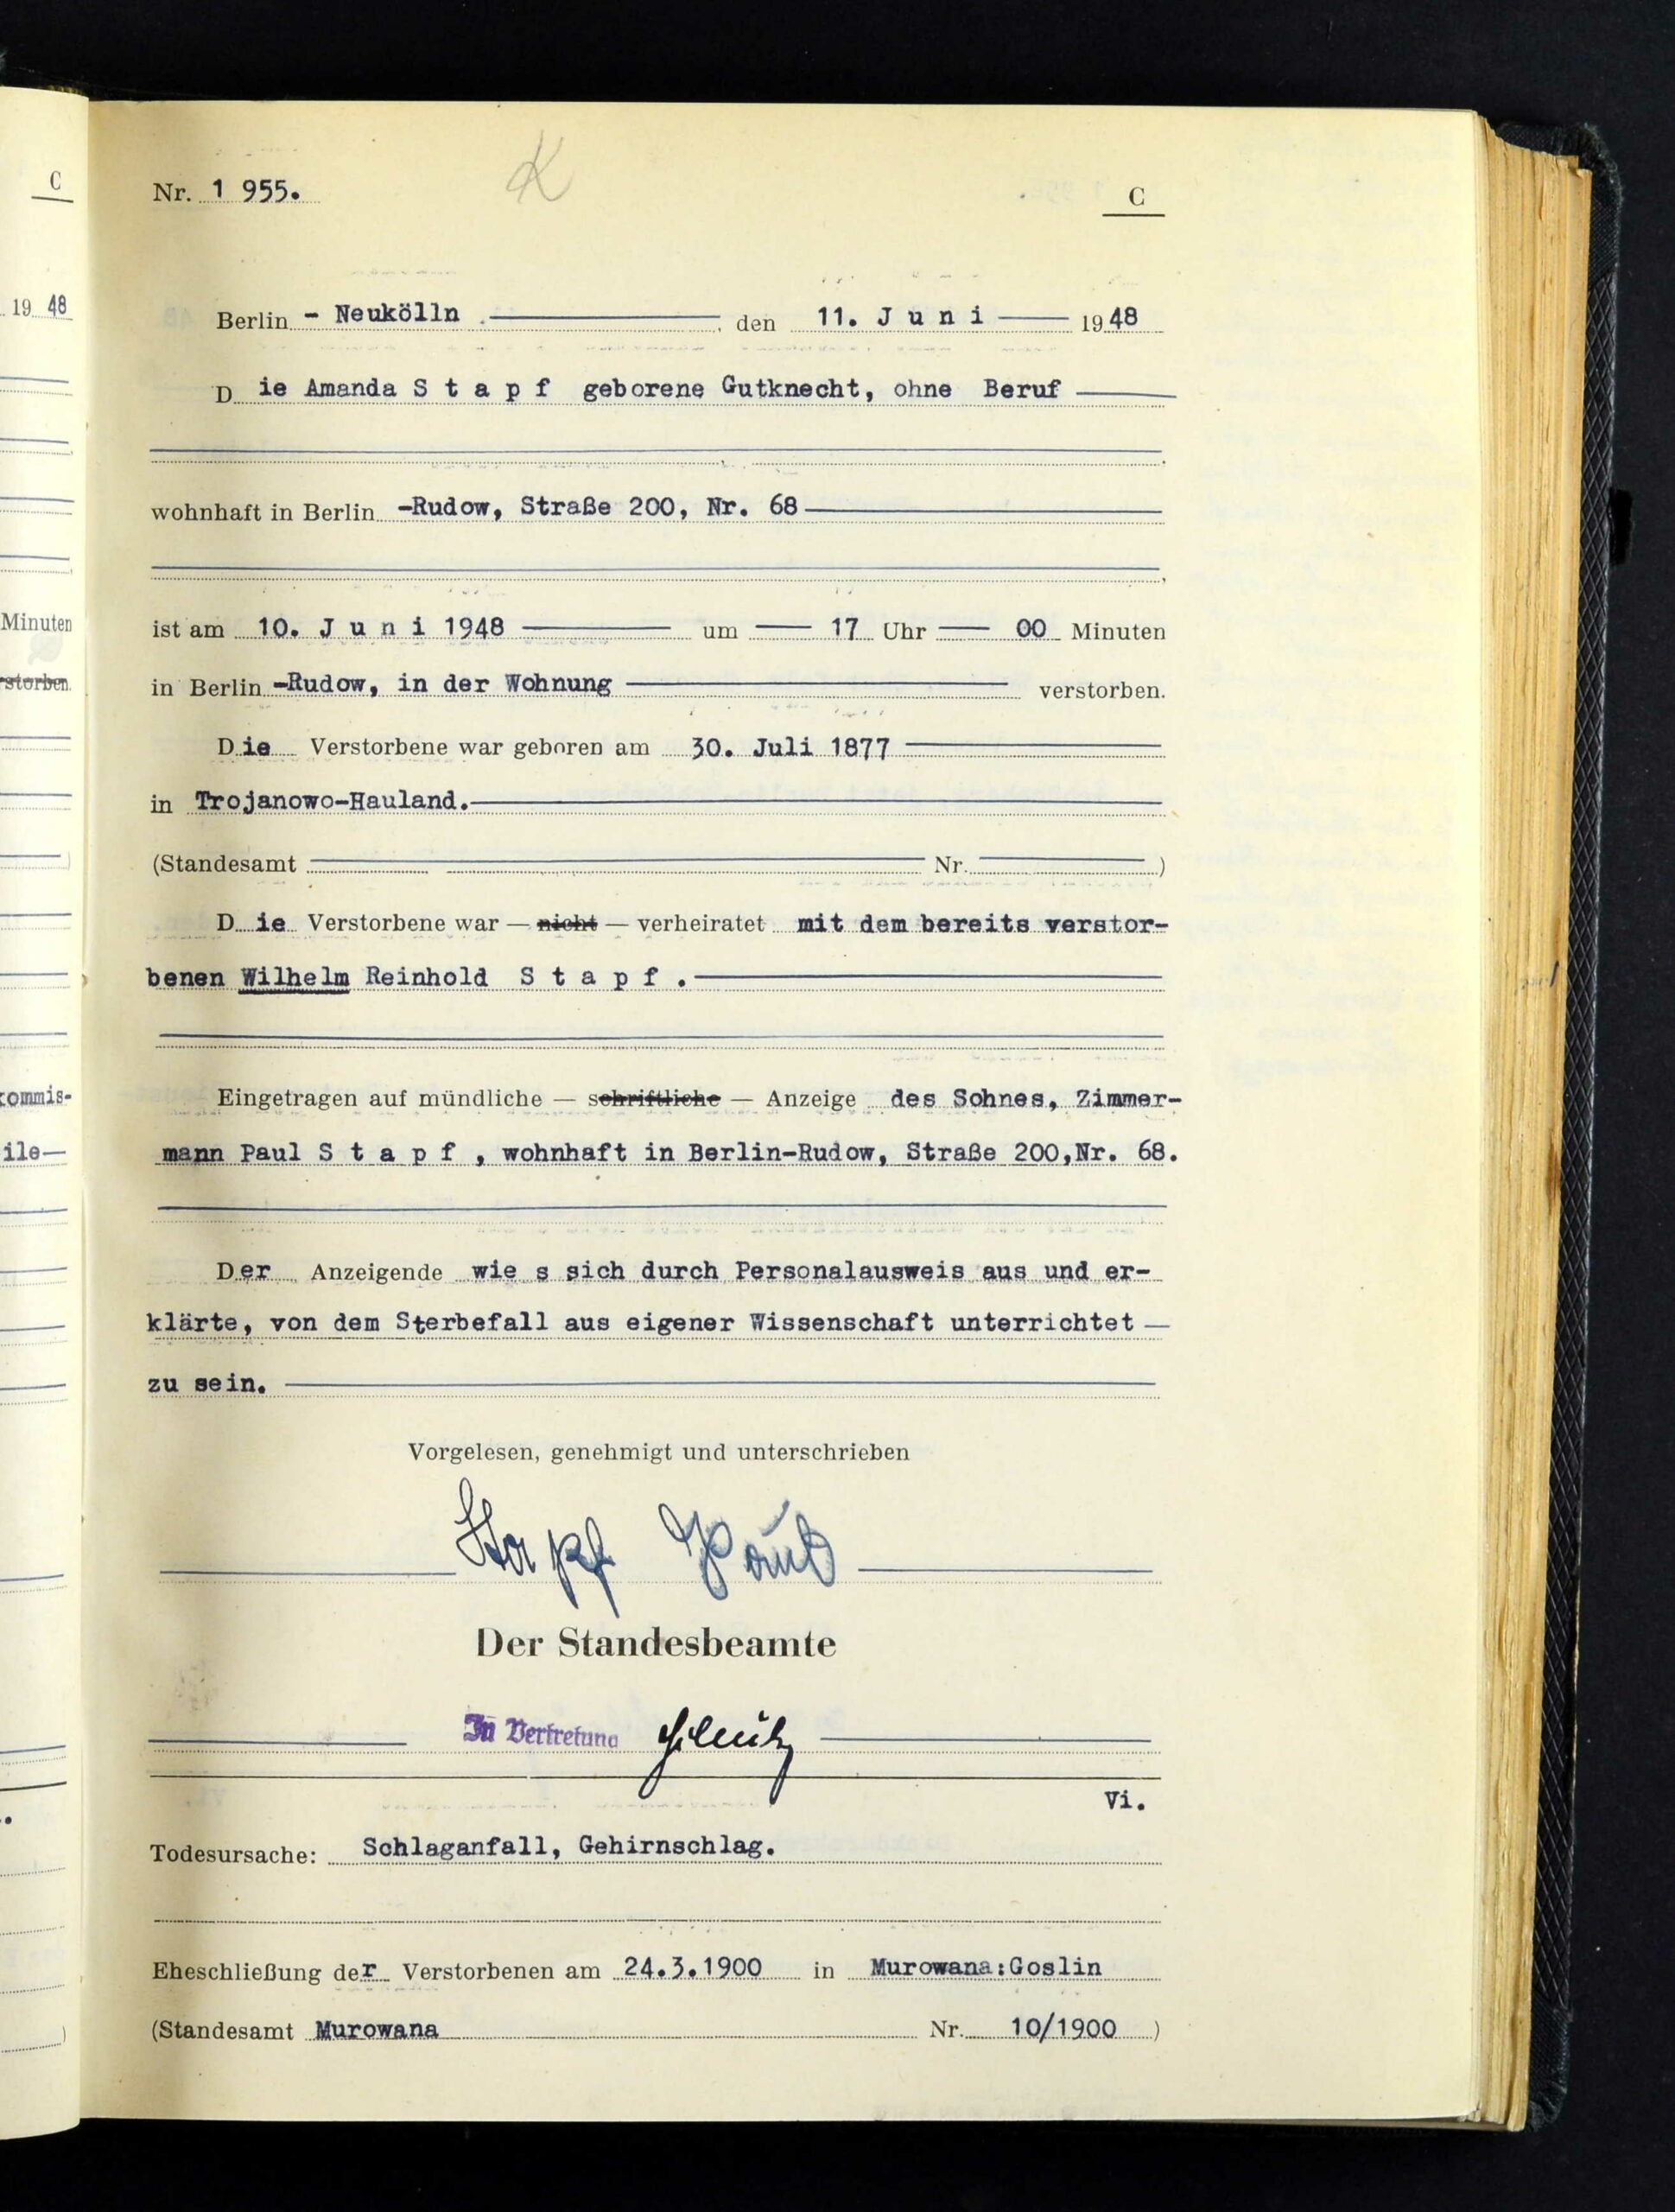 C
19 48
Minuten
storben.
kommis-
ile—
Nr. 1 955.
K
C
Berlin - Neukölln, den 11. J u n i 1948
D ie Amanda S t a p f geborene Gutknecht, ohne Beruf
wohnhaft in Berlin -Rudow, Straße 200, Nr. 68
ist am 10. J u n i 1948 um 17 Uhr 00 Minuten
in Berlin -Rudow, in der Wohnung verstorben.
Die Verstorbene war geboren am 30. Juli 1877
in Trojanowo-Hauland.
(Standesamt Nr. )
D ie Verstorbene war — nicht — verheiratet mit dem bereits verstor-
benen Wilhelm Reinhold S t a p f .
Eingetragen auf mündliche — schriftliche — Anzeige des Sohnes, Zimmer-
mann Paul S t a p f , wohnhaft in Berlin-Rudow, Straße 200,Nr. 68.
Der Anzeigende wie s sich durch Personalausweis aus und er-
klärte, von dem Sterbefall aus eigener Wissenschaft unterrichtet —
zu sein.
Vorgelesen, genehmigt und unterschrieben
Stapf Paul
Der Standesbeamte
In Vertretung
Vi.
Todesursache: Schlaganfall, Gehirnschlag.
Eheschließung der Verstorbenen am 24.3.1900 in Murowana:Goslin
(Standesamt Murowana Nr. 10/1900 )